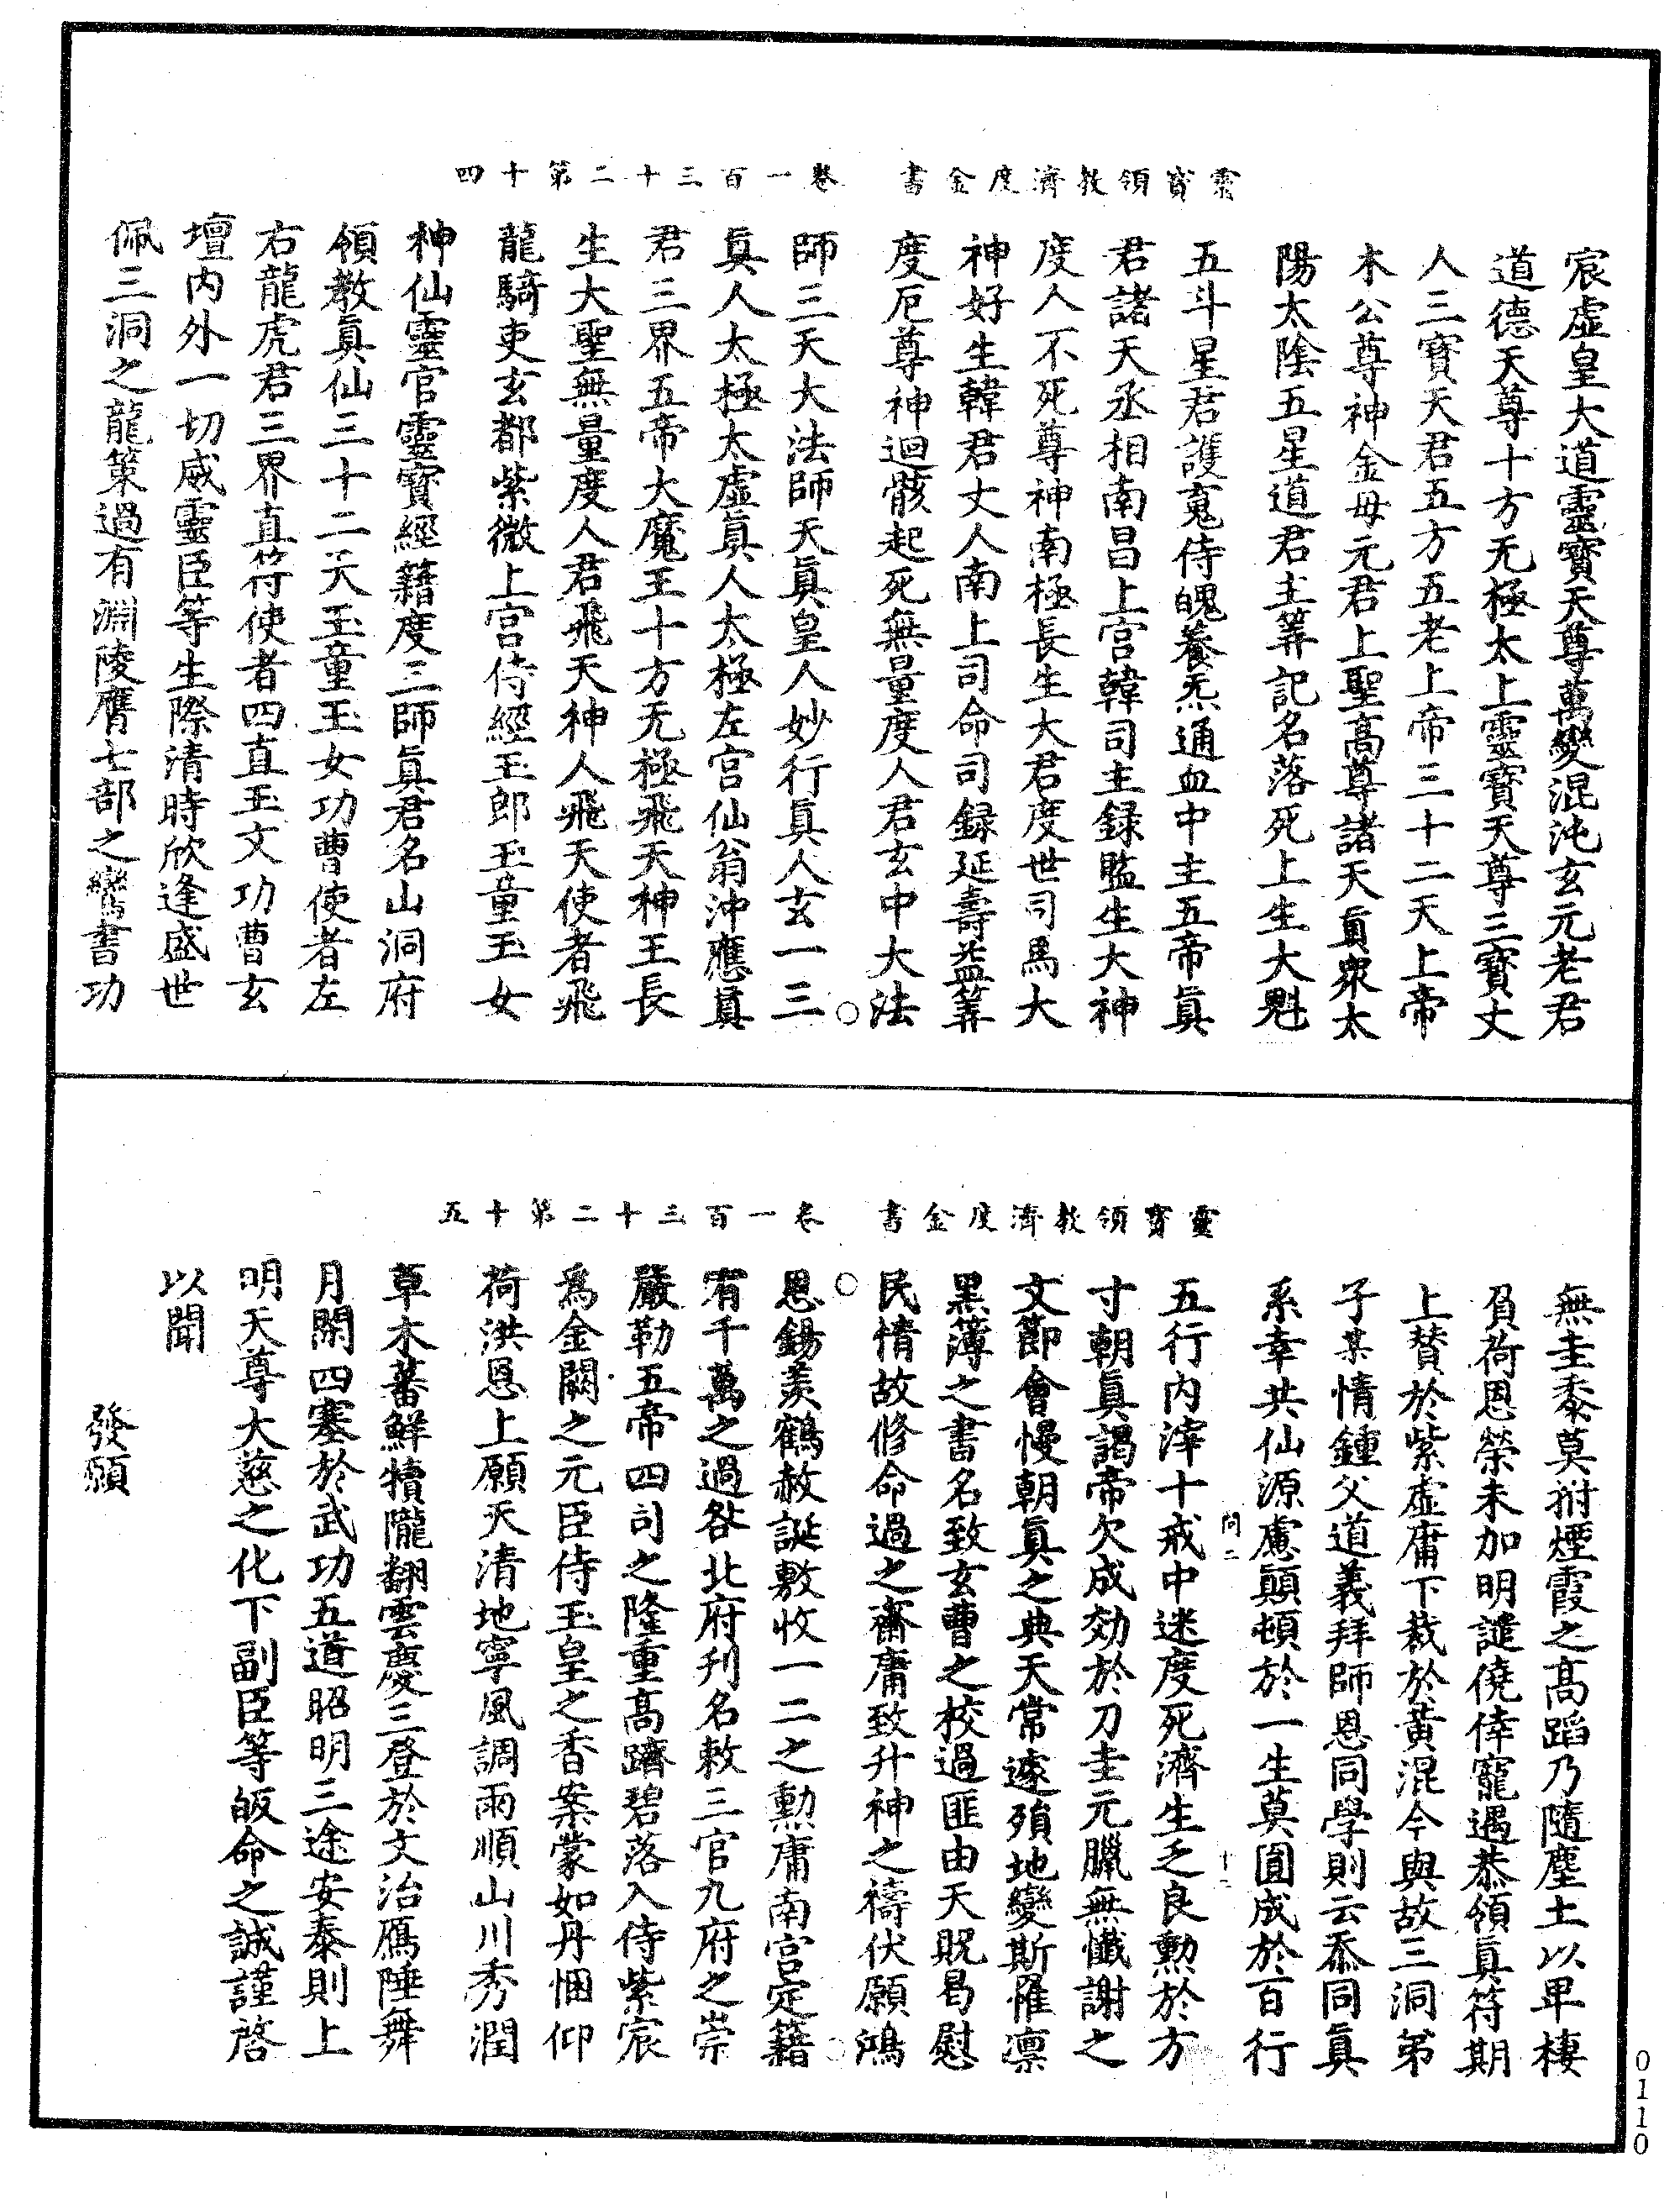 靈寶領教濟度金書　卷一百三十二第十四
宸虛皇大道靈寶天尊萬變混沌玄元老君
道德天尊十方无極太上靈寶天尊三寶丈
人三寶天君五方五老上帝三十二天上帝
木公尊神金母元君上聖高尊諸天眞衆太
陽太陰五星道君主筭記名落死上生大魁
五斗星君護䰟侍魄養炁通血中主五帝眞
君諸天丞相南昌上宮韓司主錄監生大神
度人不死尊神南極長生大君度世司馬大
神好生韓君丈人南上司命司録延壽益筭
度厄尊神迴骸起死無量度人君玄中大法
師三天大法師天眞皇人妙行眞人玄一三
眞人太極太虛眞人太極左宮仙翁沖應眞
君三界五帝大魔王十方无極飛天神王長
生大聖無量度人君飛天神人飛天使者飛
龍騎吏玄都紫微上宮侍經玉郎玉童玉女
神仙靈官靈寶經籍度三師眞君名山洞府
領教眞仙三十二天玉童玉女功曹使者左
右龍虎君三界直符使者四直玉文功曹玄
壇内外一切威靈臣等生際清時欣逢盛世
佩三洞之龍策過有淵陵膺七部之鸞書功
靈寶領教濟度金書　卷一百三十二第十五
無圭黍莫拊煙霞之高蹈乃隨塵土以卑棲
負荷恩榮未加明譴僥倖寵遇恭領眞符期
上賛於紫虛庸下裁於黄混今與故三洞弟
子某情鍾父道義拜師恩同學則云忝同眞
系幸共仙源慮顚頓於一生莫圓成於百行
五行内滓十戒中迷度死濟生乏良勳於方
寸朝眞謁帝欠成効於刀圭元臘無懺謝之
文節會慢朝眞之典天常遽殞地變斯罹凛
黑簿之書名致玄曹之校過匪由天貺曷慰
民情故修命過之齋庸致升神之禱伏願鴻
恩錫羨鶴赦誕敷收一二之勳庸南宮定籍
宥千萬之過咎北府刋名敕三官九府之崇
嚴勒五帝四司之隆重高躋碧落入侍紫宸
爲金闕之元臣侍玉皇之香案蒙如丹悃仰
荷洪恩上願天清地寧風調雨順山川秀潤
草木蕃鮮犢隴翻雲慶三登於文治鴈陲舞
月閑四塞於武功五道昭明三途安泰則上
明天尊大慈之化下副臣等皈命之誠謹啓
以聞
發願
問二
十二
0110